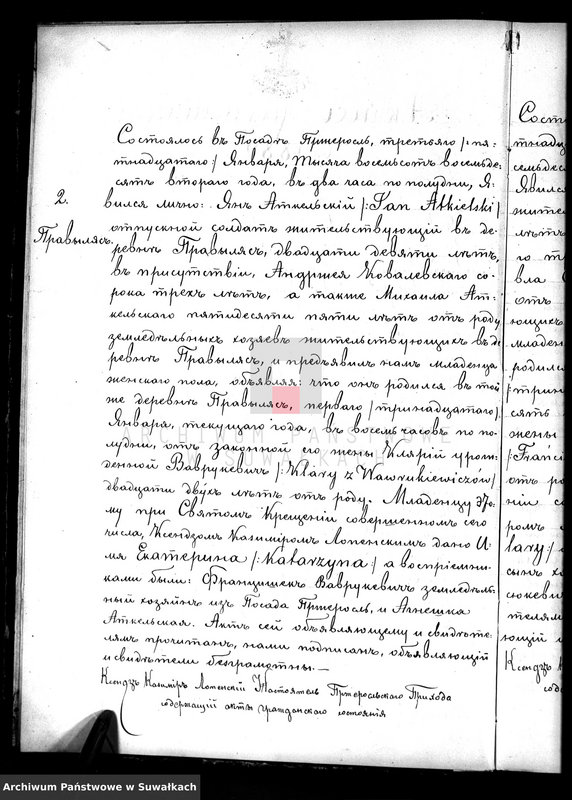 Состоялось въ Посадѣ Пржеросль, третьяго /: пя-
тнадцатаго :/ Января, тысяча восемьсотъ восемьде-
сятъ втораго года, въ два часа по полудни, Я-
2.
вился лично: Янъ Аткельскій /: Jan Atkielski :/
Правылясъ.
отпускной солдатъ жительствующій въ де-
ревнѣ Правылясъ, двадцати девяти лѣтъ,
въ присутствіи, Андржея Ковалевскаго со-
рока трехъ лѣтъ, а также Михаила Ат-
кельскаго пятидесяти пяти лѣтъ отъ роду
земледѣльныхъ хозяевъ жительствующихъ въ де-
ревнѣ Правылясъ, и предъявилъ намъ младенца
женскаго пола, объявляя: что онъ родился въ той
же деревнѣ Правылясъ, перваго /: тринадцатаго :/
Января, текущаго года, въ восемь часовъ по по-
лудни, отъ законной его жены Кляріи урож-
денной Ваврукевичъ /: Klary z Wawrukiewiczów :/
двадцати двухъ лѣтъ отъ роду. Младенцу Это-
му при Святомъ Крещеніи совершенномъ сего
числа, Ксендзомъ Казиміромъ Лопенскимъ дано И-
мя Екатерина /: Katarzyna :/ а воспріемни-
ками были: Францишекъ Ваврукевичъ земледѣль-
ный хозяинъ изъ Посада Пржеросль, и Агнешка
Аткельская. Актъ сей объявляющему и свидѣте-
лямъ прочитанъ, нами подписанъ, объявляющій
и свидѣтели безграмотны. —
Ксендзъ Казиміръ Лопенскій Настоятель Пржерослскаго Прихода
содержащій акты гражданскаго состоянія
ARCHIWUM PAŃSTWOWE
SUWAŁKACH
Archiwum Państwowe w Suwałkach